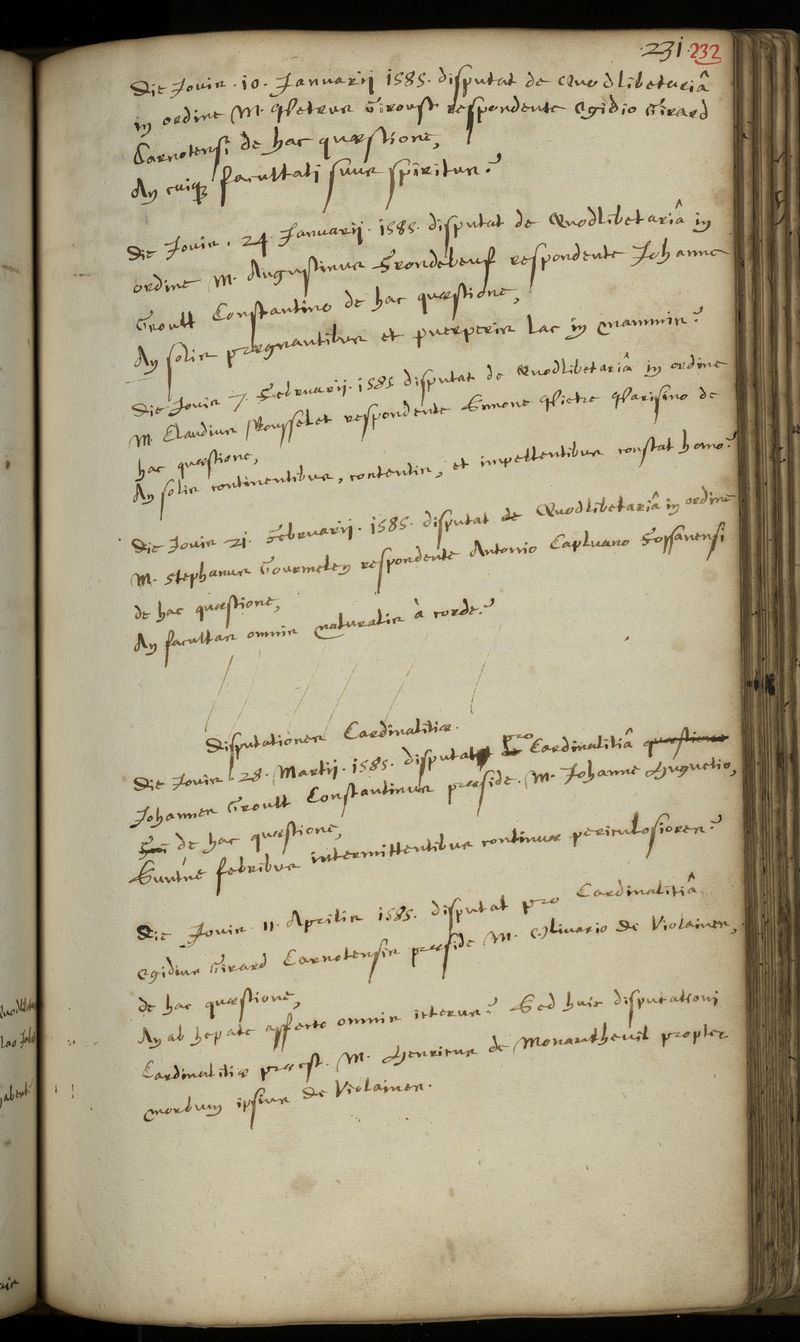 ·231· 232
Die Jovis · 10 · Januarij 1585 · disputat de Quodlibetariâ
in ordine M. Petrus Giroust respondente Egidio Girard
Carnotensi de hac quæstione,
An cuiq; facultati suus spiritus?
Die Jovis · 24 · Januarij · 1585 · disputat de Quodlibetariâ in
ordine M. Augustinus Frondebeuf respondente Johanne
Groult Constantino de hac quæstione,
An solis prægnantibus et puerperis lac in mammis?
Die Jovis 7 · Februarij · 1585 disputat de Quodlibetariâ in ordine
M. Claudius Rousselet respondente Simone Pietre Parisino de
hac quæstione,
An solis continentibus, contentis, et impellentibus constat homo?
Die Jovis 21 · Februarij · 1585 · disputat de Quodlibetariâ in ordine
M. Stephanus Gourmelen respondente Antonio Capluano Fossanensi
de hac quæstione,
An facultas omnis naturalis à corde?
Disputationes Cardinalitiæ.
Die Jovis · 28 · Martij · 1585 · disputat pro Cardinalitiâ quæstione
Johannes Groult Constantinus præside · M. Johanne Huguetio,
de hac quæstione,
Suntne febribus intermittentibus continuæ periculosiores?
Die Jovis 11 · Aprilis 1585 · disputat pro Cardinalitiâ
Egidius Girard Carnotensis præside M. Olivario de Violaines,
de hac quæstione,
An ab hepate affecto omnis icterus? Sed huic disputationi
Cardinalitiæ præest · M. Henricus de Monantheuil propter
morbum ipsius de Violaines.